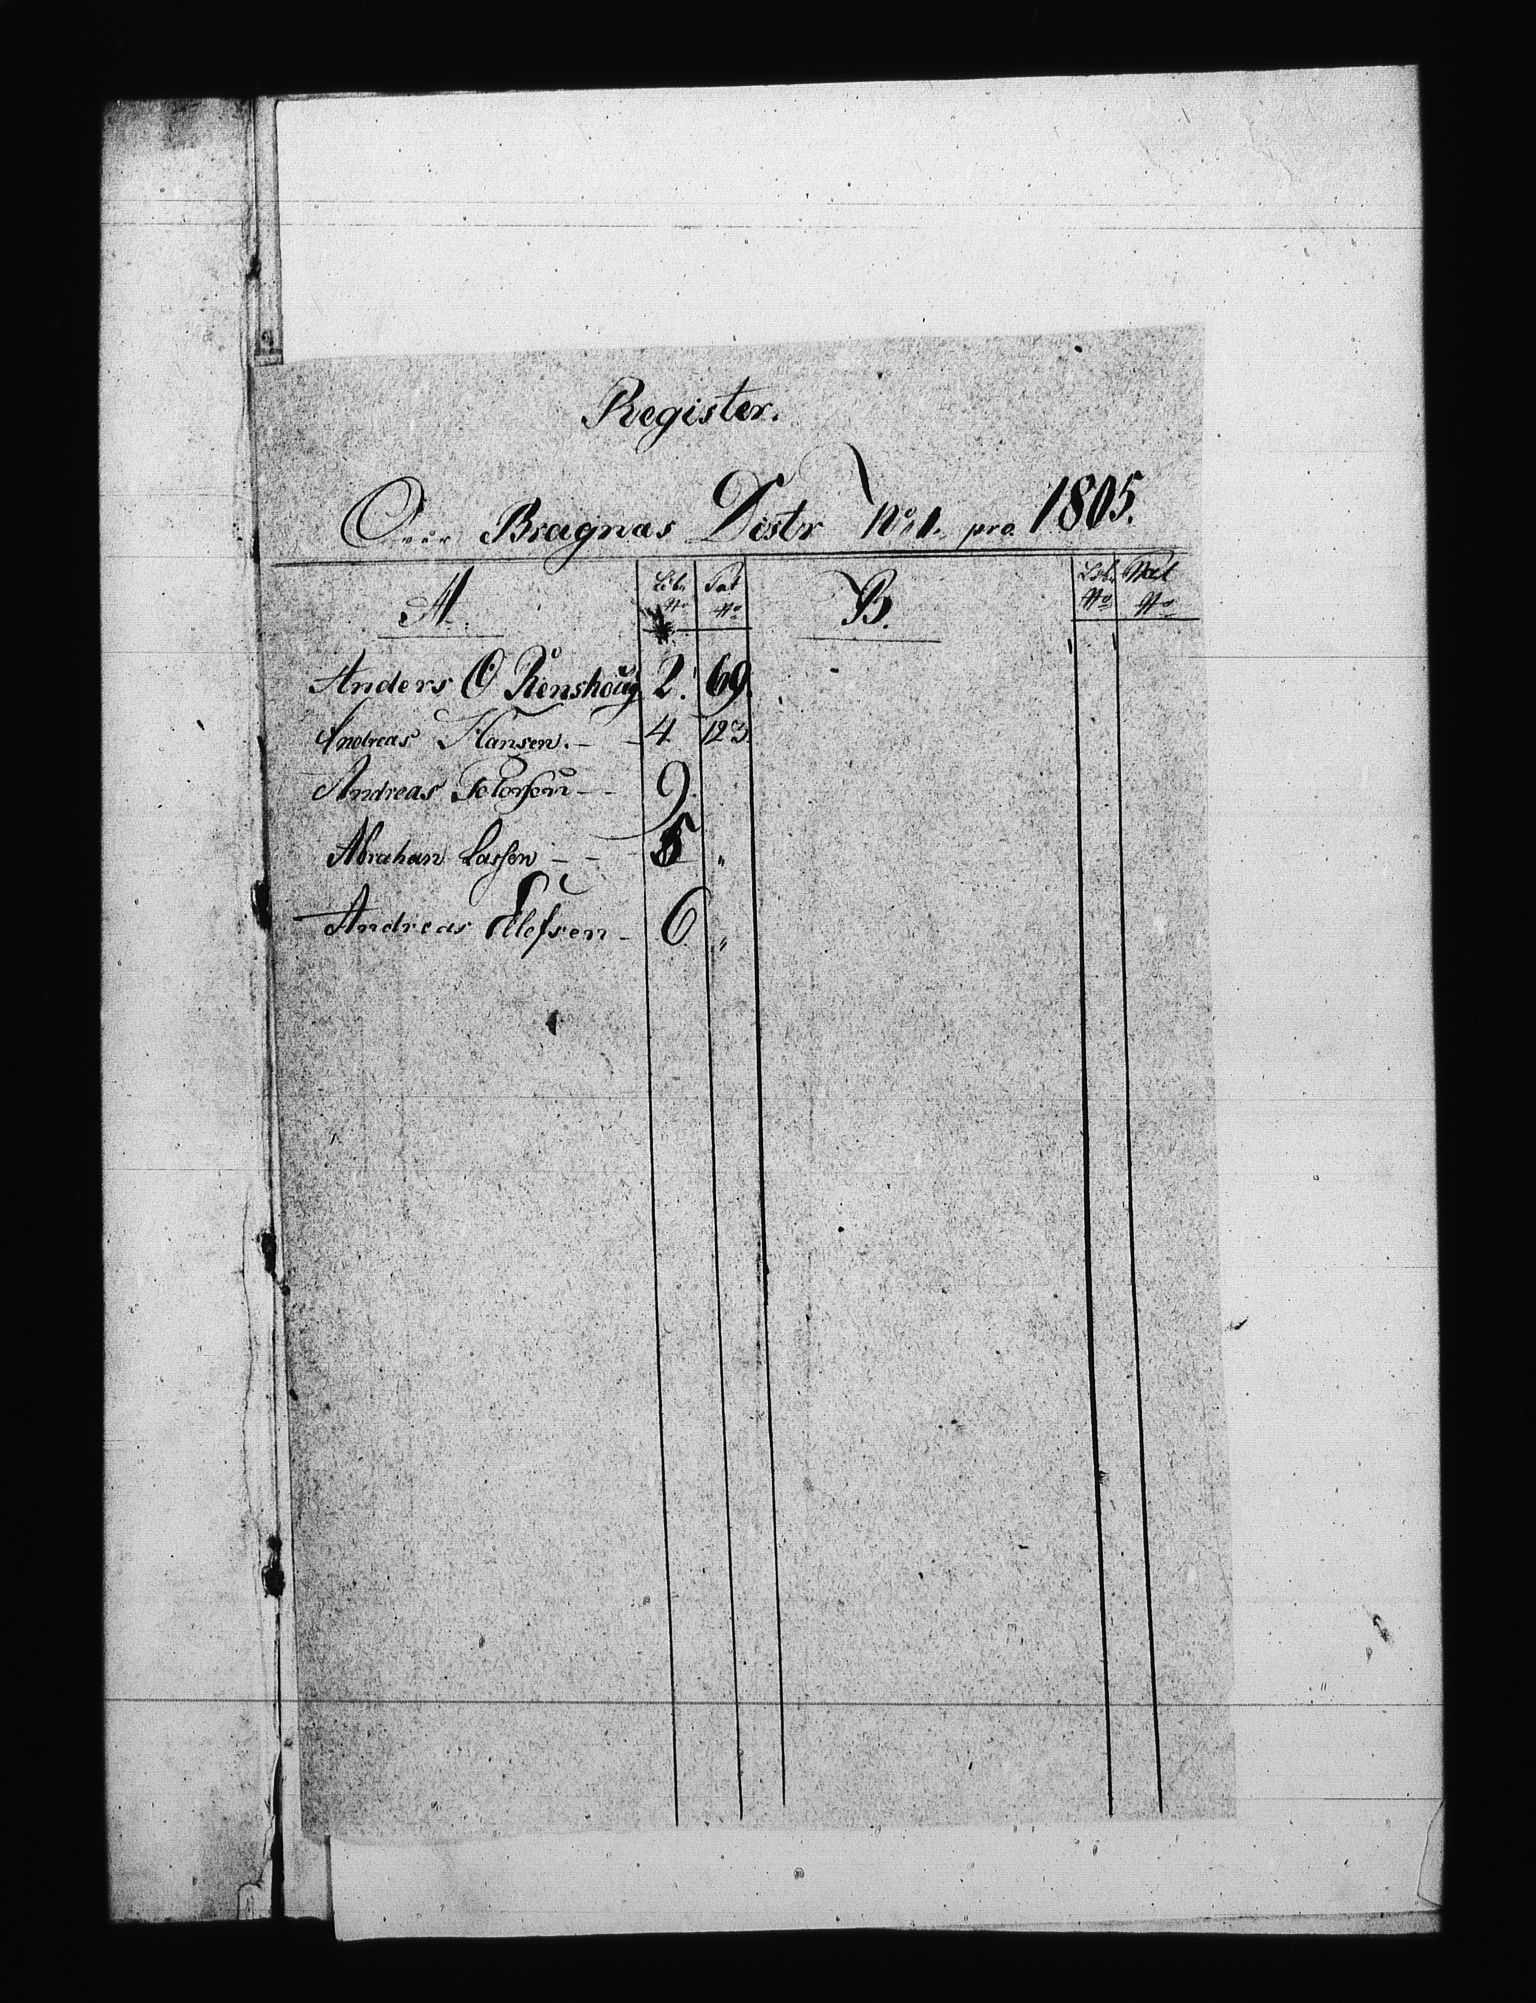 Register.
Over Bragnas Distr No 1. pro. 1805.
A. Lib. No Pat No B. Lib. No Pat No
Anders O Renskoug 2. 69.
Andreas Hansen. - - 4 123
Andreas Petersen - - 9.
Abraham Lassen - - 5 "
Andreas Ellefsen - 6 "